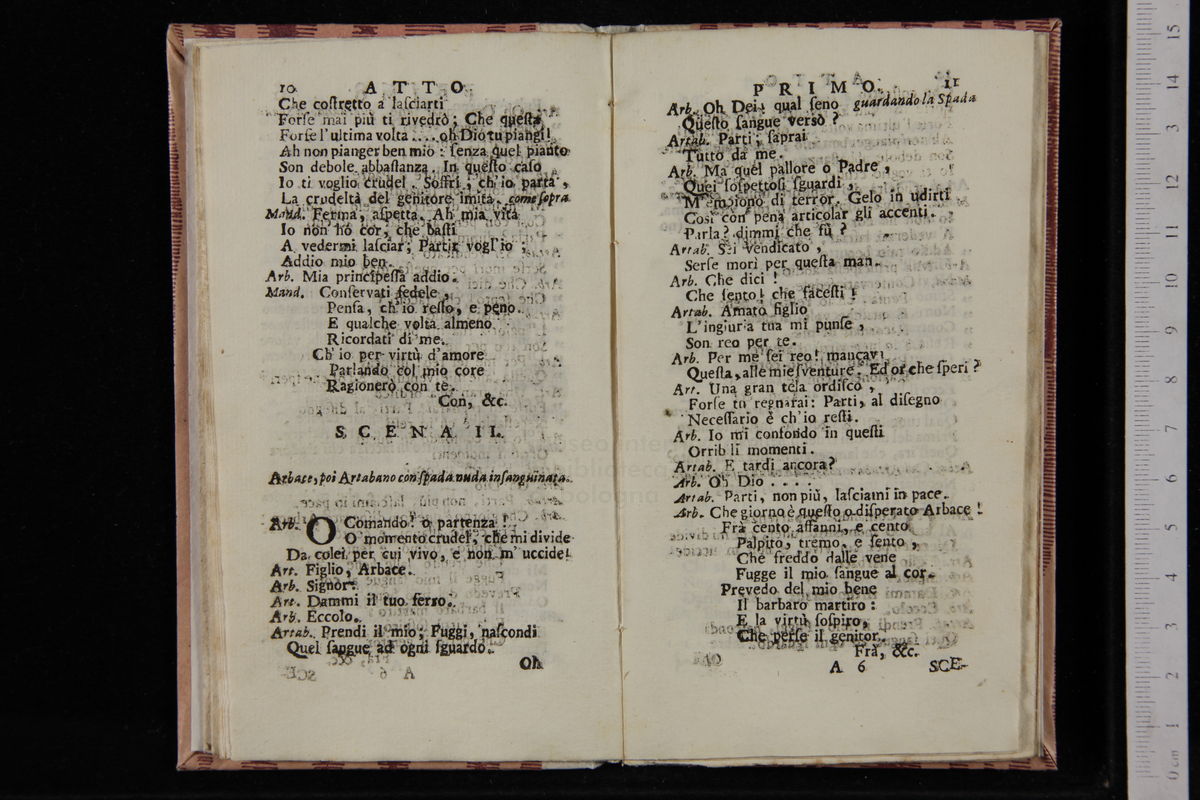 10 ATTO
Che costretto a lasciarti
Forse mai più ti rivedrò; Che questa
Forse l'ultima volta .... oh Dio tu piangi!
Ah non pianger ben mio: senza quel pianto
Son debole abbastanza. In questo caso
Io ti voglio crudel. Soffri, ch'io parta,
La crudeltà del genitore imita. come sopra
Mand. Ferma, aspetta. Ah mia vita
Io non hò cor, che basti
A vedermi lasciar; Partir vogl'io;
Addio mio ben.
Arb. Mia principessa addio.
Mand. Conservati fedele,
Pensa, ch'io resto, e peno.
E qualche volta almeno
Ricordati di me.
Ch'io per virtù d'amore
Parlando col mio core
Ragionerò con te.
Con, &c.
SCENA II.
Arbace, poi Artabano con spada nuda insanguinata.
Arb. O Comando! o partenza!
O momento crudel, che mi divide
Da colei per cui vivo, e non m'uccide!
Art. Figlio, Arbace.
Arb. Signor:
Art. Dammi il tuo ferro.
Arb. Eccolo.
Artab. Prendi il mio; Fuggi, nascondi
Quel sangue ad ogni sguardo.
Oh
PRIMO. 11
Arb. Oh Dei! qual seno guardando la Spada
Questo sangue versò?
Artab. Parti, saprai
Tutto da me.
Arb. Ma quel pallore o Padre,
Quei sospettosi sguardi,
M'empiono di terror. Gelo in udirti
Così con pena articolar gli accenti.
Parla? dimmi che fù?
Artab. Sei Vendicato,
Serse morì per questa man.
Arb. Che dici!
Che sento! che facesti!
Artab. Amato figlio
L'ingiuria tua mi punse,
Son reo per te.
Arb. Per me sei reo! mancavi
Questa, alle mie sventure. Ed or che speri?
Art. Una gran tela ordisco,
Forse tu regnarai: Parti, al disegno
Necessario è ch'io resti.
Arb. Io mi confondo in questi
Orribili momenti.
Artab. E tardi ancora?
Arb. Oh Dio ....
Artab. Parti, non più, lasciami in pace.
Arb. Che giorno è questo o disperato Arbace!
Frà cento affanni, e cento
Palpito, tremo, e sento,
Che freddo dalle vene
Fugge il mio sangue al cor.
Prevedo del mio bene
Il barbaro martiro:
E la virtù sospiro,
Che perse il genitor.
Frà, &c.
A 6 SCE-